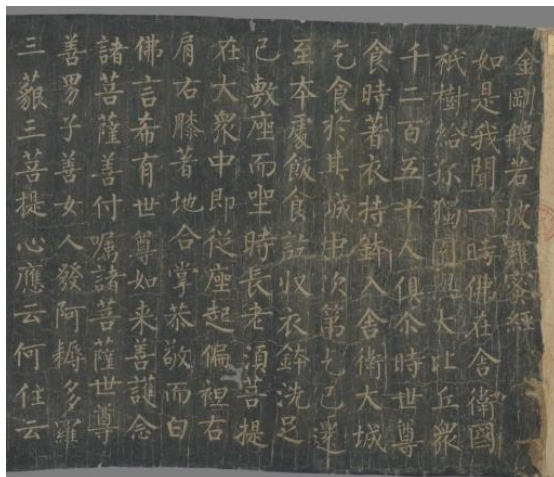 金剛般若波羅蜜經
如是我聞一時佛在舍衛國
祇樹給孤獨園與大比丘衆
千二百五十人俱尒時世尊
食時著衣持鉢入舍衛大城
乞食於其城中次第乞已還
至本處飯食訖收衣鉢洗足
已敷座而坐時長老須菩提
在大衆中即從座起偏袒右
肩右膝著地合掌恭敬而白
佛言希有世尊如来善護念
諸菩薩善付嘱諸菩薩世尊
善男子善女人發阿耨多羅
三藐三菩提心應云何住云